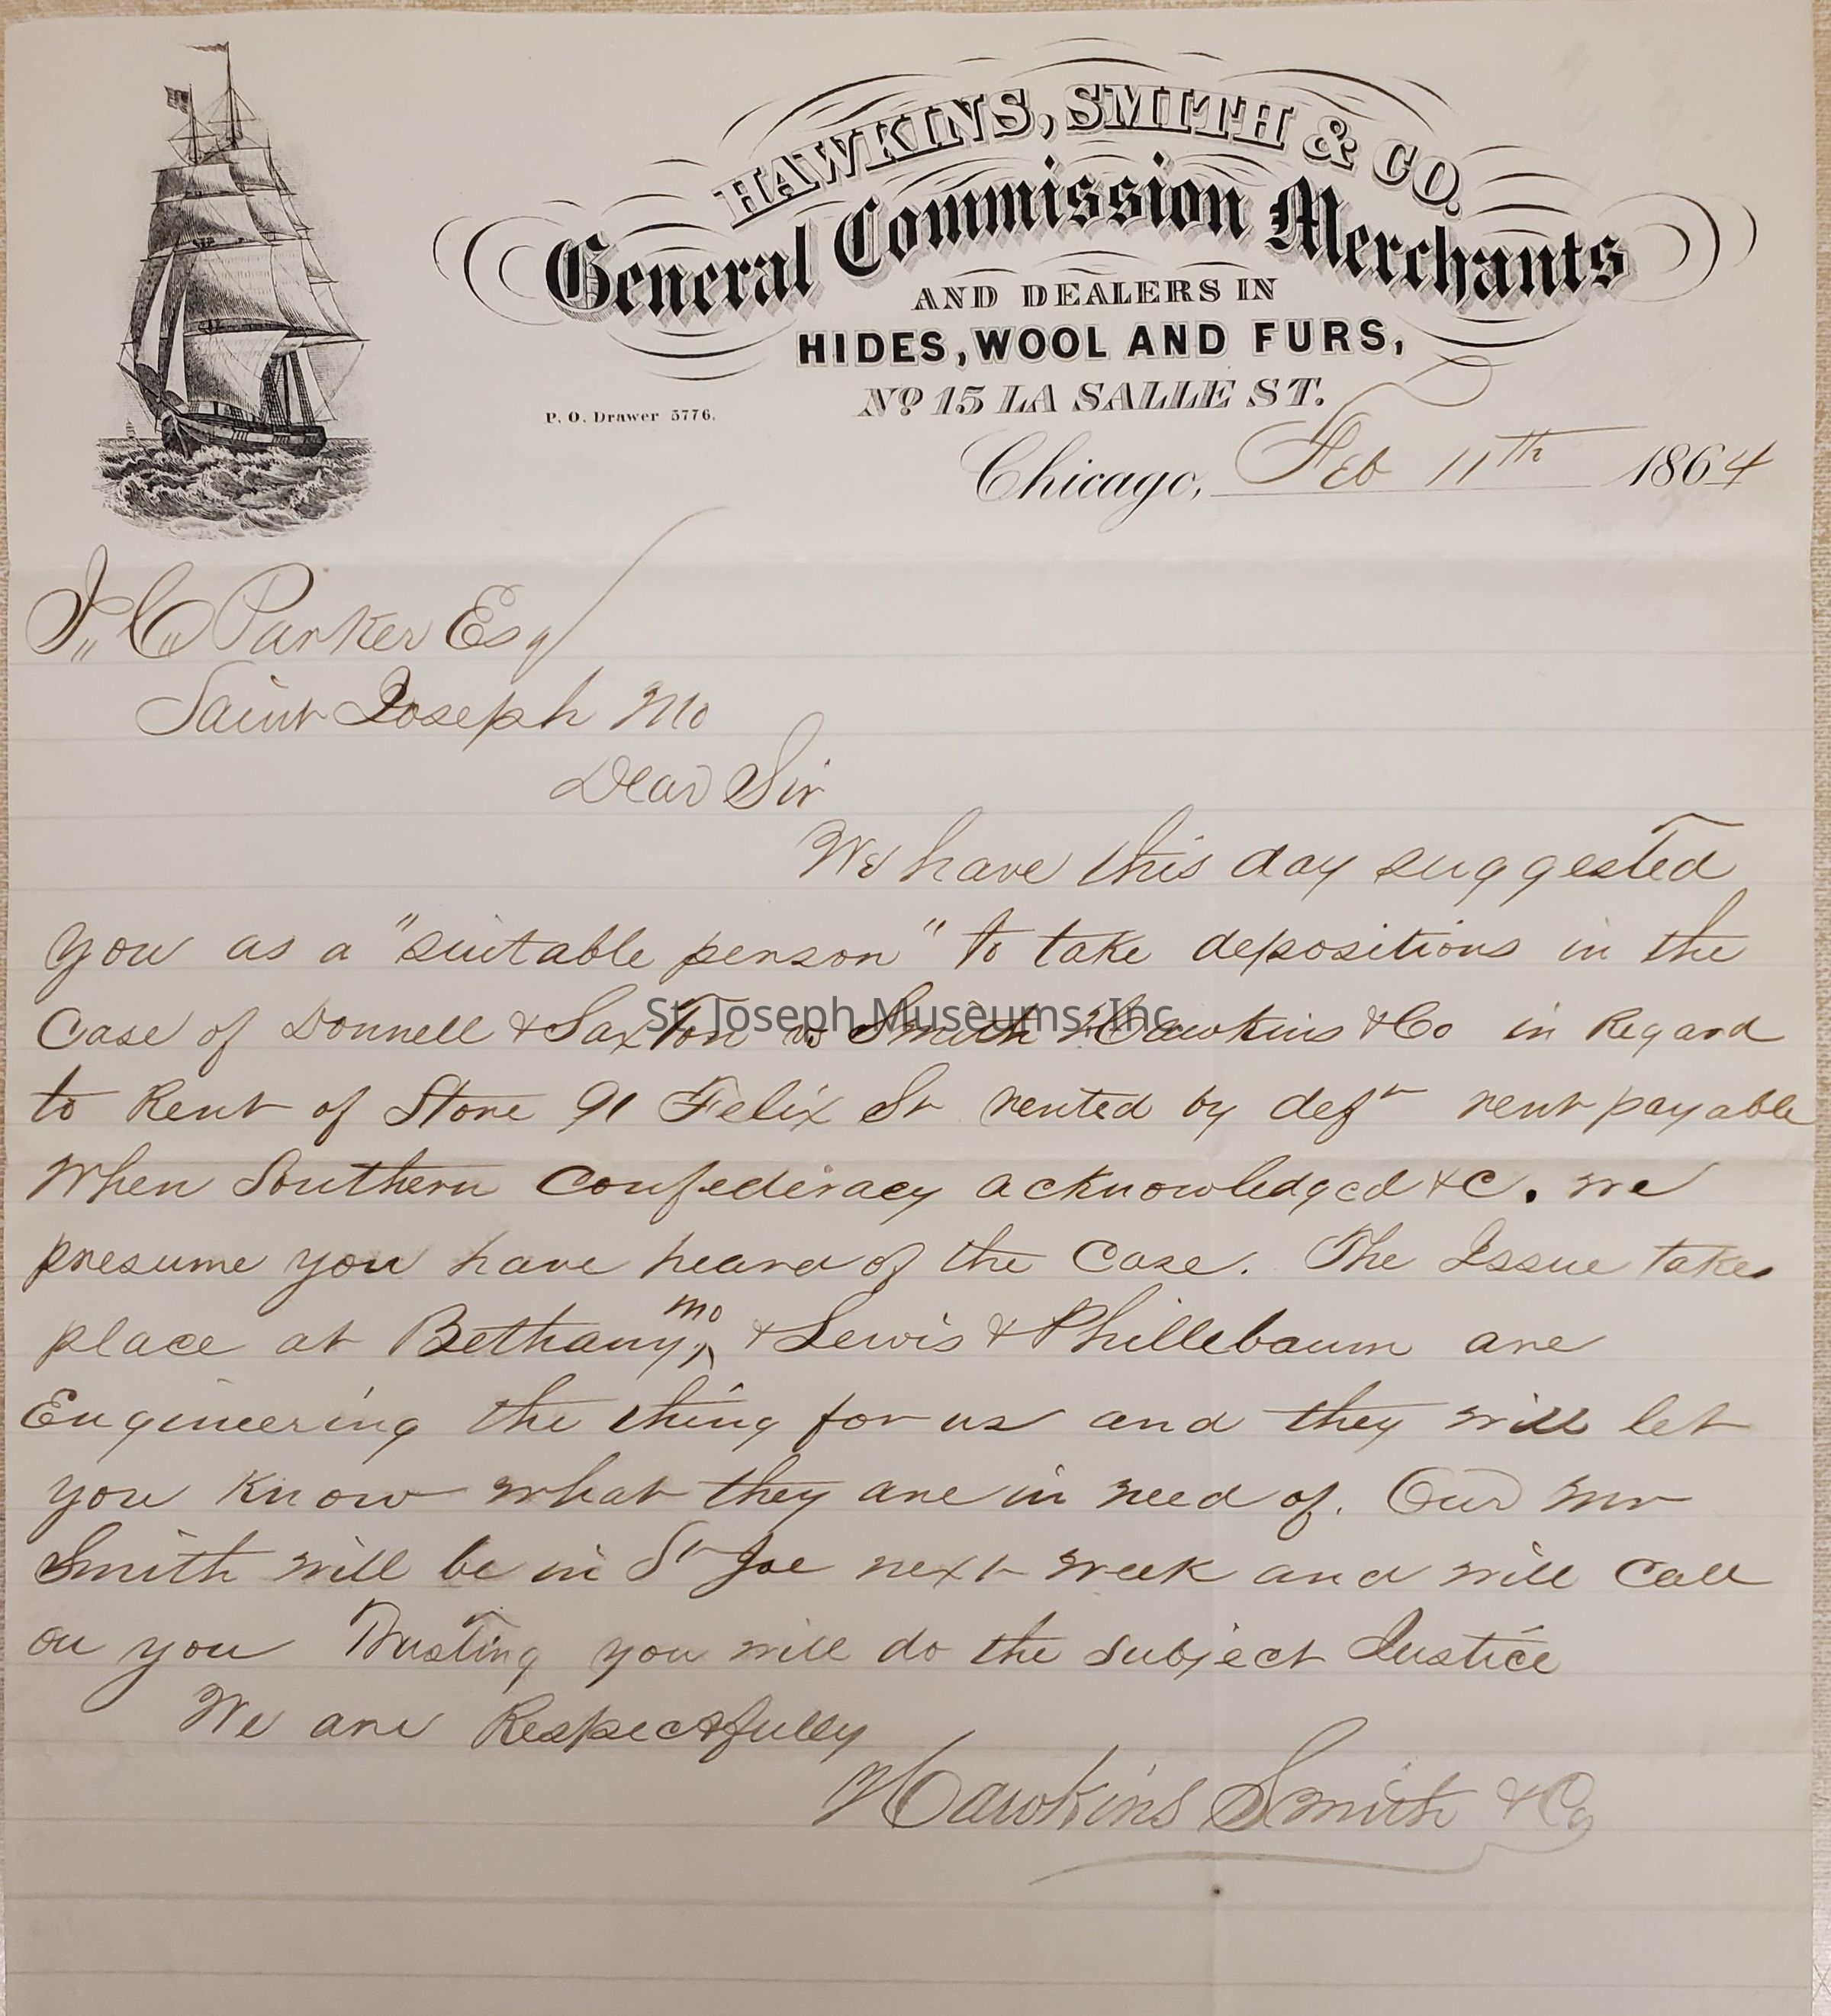 HAWKINS, SMITH & CO.
General Commission Merchants
AND DEALERS IN
HIDES, WOOL AND FURS,
No 15 LA SALLE ST.
P. O. Drawer 5776.
Chicago, Feb 11th 1864
J,, C,, Parker Esq
Saint Joseph Mo
Dear Sir
We have this day suggested
you as a "suitable person" to take depositions in the
Case of Donnell & Saxton vs Smith Hawkins & Co in Regard
to Rent of Store 91 Felix St rented by deft rent payable
When Southern Confederacy acknowledged &c. we
presume you have heard of the Case. The Issue takes
place at Bethany, Mo & Lewis & Phillebaum are
Engineering the thing for us and they will let
you Know what they are in need of. Our Mr
Smith will be in St Joe next week and will Call
on you Trusting you will do the Subject Justice
We are Respectfully
Hawkins Smith & Co
St. Joseph Museums, Inc.